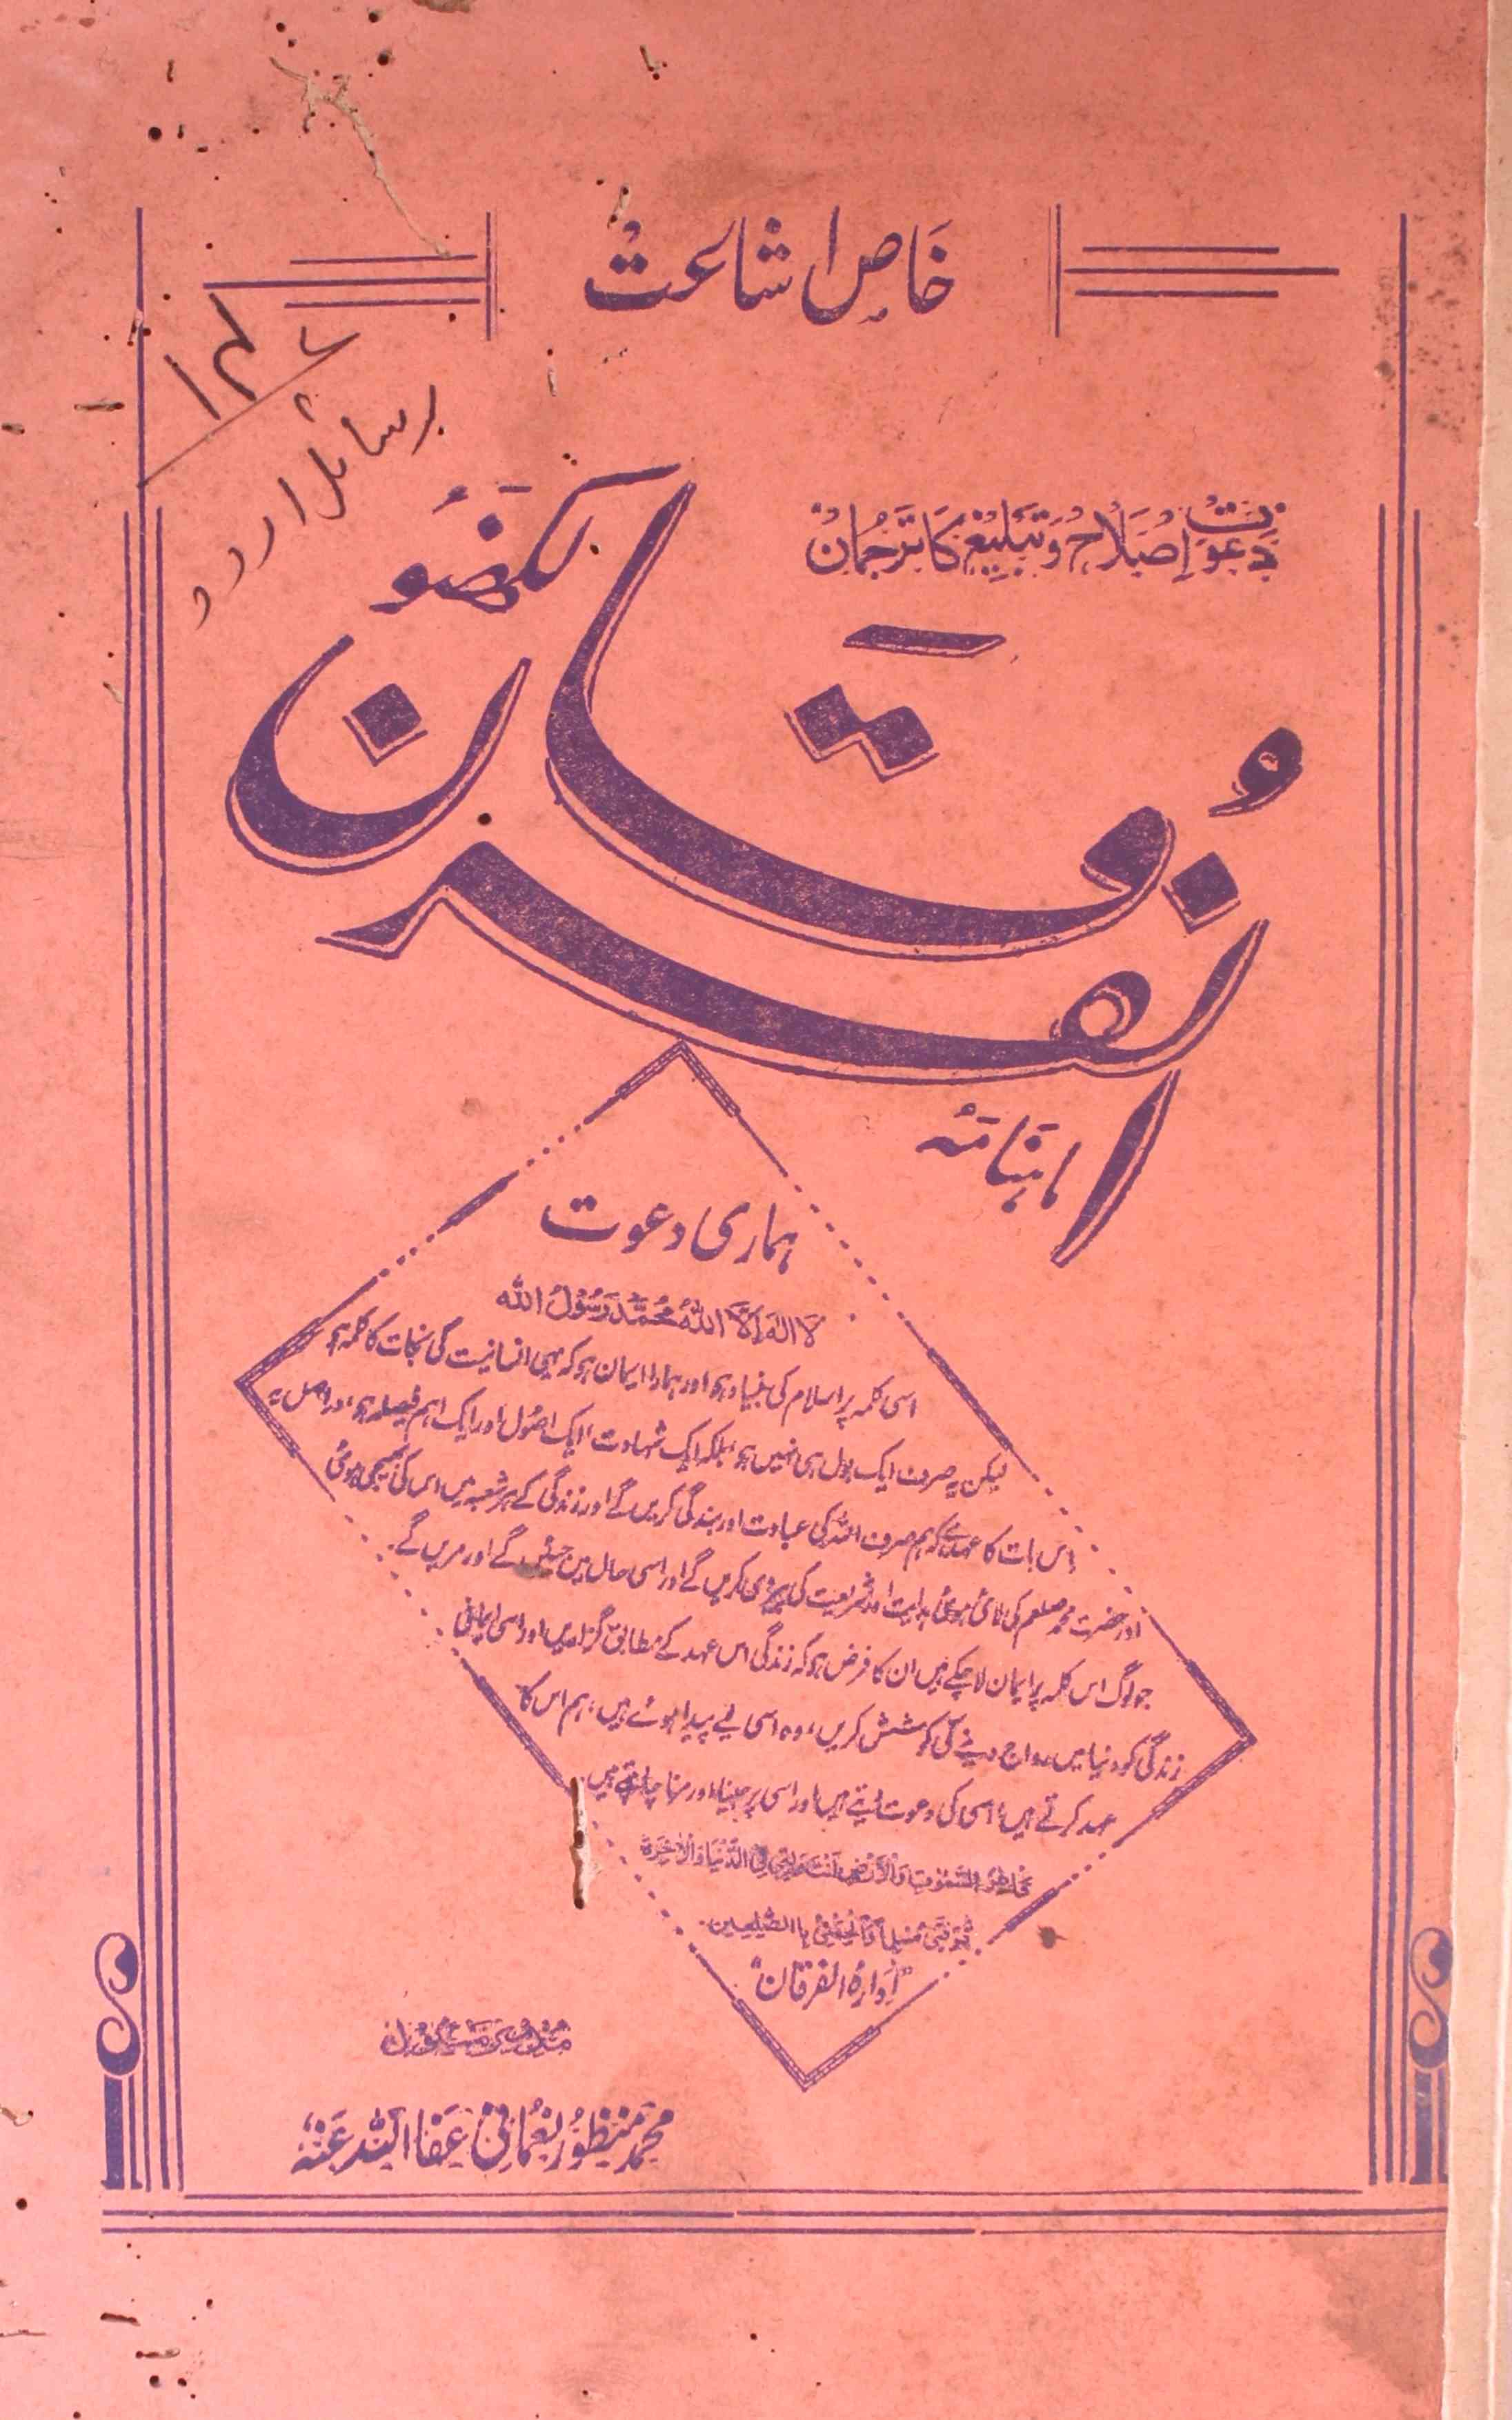 خاص اشاعت
۱۴۷
رسائل اردو
دعوت اصلاح و تبلیغ کا ترجمان
ماہنامہ
الفرقان
لکھنؤ
ہماری دعوت
لَا اِلٰهَ اِلَّا اللهُ مُحَمَّدٌ رَّسُوْلُ الله
اسی کلمہ پر اسلام کی بنیاد ہو اور ہمارا ایمان ہو کہ یہی انسانیت کی نجات کا کلمہ ہو
لیکن یہ صرف ایک بول ہی نہیں ہو بلکہ ایک شہادت، ایک اصول اور ایک اہم فیصلہ ہو، دراصل یہ
اس بات کا عہد ہے کہ ہم صرف اللہ کی عبادت اور بندگی کریں گے اور زندگی کے ہر شعبہ میں اس کی بھیجی ہوئی
اور حضرت محمد صلعم کی لائی ہوئی ہدایت اور شریعت کی پیروی کریں گے اور اسی حال میں جئیں گے اور مریں گے۔
جو لوگ اس کلمہ پر ایمان لا چکے ہیں ان کا فرض ہو کہ زندگی اس عہد کے مطابق گزاریں اور اسی ایمانی
زندگی کو دنیا میں رواج دینے کی کوشش کریں، وہ اسی لیے پیدا ہوئے ہیں، ہم اس کا
عہد کرتے ہیں، اسی کی دعوت دیتے ہیں اور اسی پر جینا اور مرنا چاہتے ہیں۔
فَاطِرَ السَّمٰوٰتِ وَالْاَرْضِ اَنْتَ وَلِيّٖ فِي الدُّنْيَا وَالْاٰخِرَة
تَوَفَّنِيْ مُسْلِمًا وَّاَلْحِقْنِيْ بِالصّٰلِحِيْن۔
"اِدارۂ الفرقان"
محمد منظور نعمانی عفا اللہ عنہ